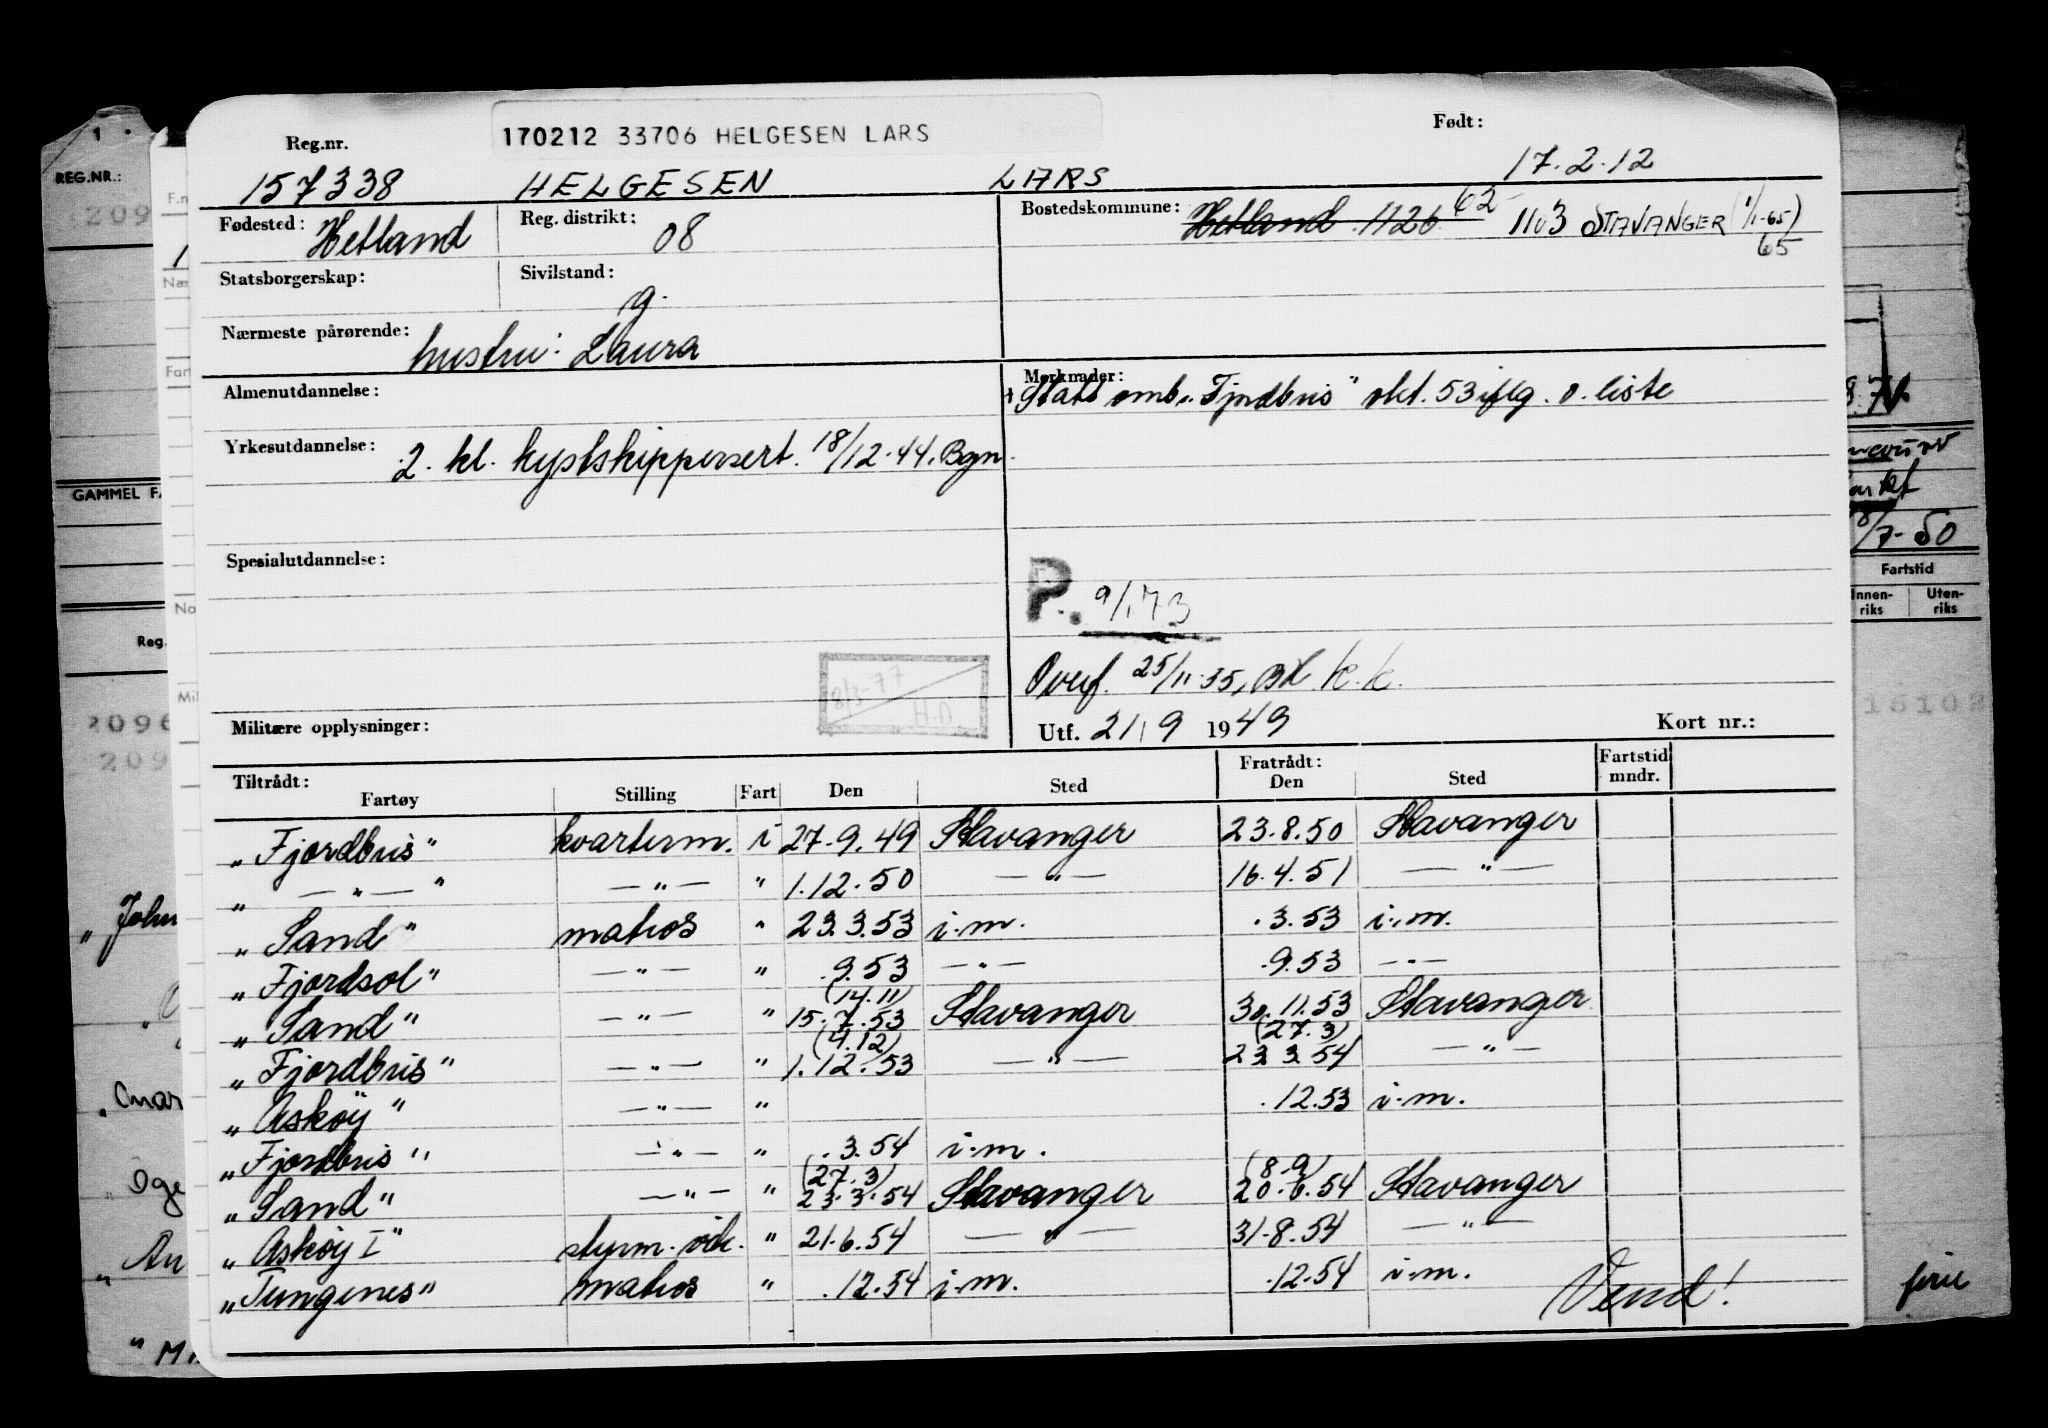 170212 33706 HELGESEN LARS
Reg.nr. Født:
157338 HELGESEN LARS 17.2.12
Fødested: Hetland Reg. distrikt: 08 Bostedskommune: Hetland 1126 62 1103 STAVANGER (1/1-65) 65
Statsborgerskap: Sivilstand: g.
Nærmeste pårørende: hustru: Laura
Almenutdannelse: Merknader:
Stått omb. „Fjordbris" okt. 53 iflg. o. liste
Yrkesutdannelse: 2. kl. kystskippersert. 18/12.44. Bgn.
Spesialutdannelse:
P. 9/1 73
8/3-77
H.O
Overf. 25/11.55, Bd. k.k.
Militære opplysninger: Utf. 21/9 1949 Kort nr.:
Tiltrådt: Fratrådt: Fartstid
Fartøy Stilling Fart Den Sted Den Sted mndr.
„Fjordbris" kvarterm. i 27.9.49 Stavanger 23.8.50 Stavanger
„ — „ — " — „ — " 1.12.50 — „ — 16.4.51 — „ —
„Sand" matros " 23.3.53 i.m. .3.53 i.m.
„Fjordsol" — „ — " .9.53 — „ — .9.53 — „ —
(14.11)
„Sand" — „ — " 15.7.53 Stavanger 30.11.53 Stavanger
(4.12) (27.3)
„Fjordbris" — „ — " 1.12.53 — „ — 23.3.54 — „ —
„Askøy" — „ — " .12.53 i.m.
„Fjordbris" — „ — " .3.54 i.m.
(27.3) (8.9)
„Sand" — „ — " 23.3.54 Stavanger 20.6.54 Stavanger
„Askøy I" styrm. vik. " 21.6.54 — „ — 31.8.54 — „ —
„Tungenes" matros " .12.54 i.m. .12.54 i.m.
Vend!
REG.NR.:
209
GAMMEL
Reg.
2096
209
„John
Fartstid
Innen-
riks
Uten-
riks
/7-50